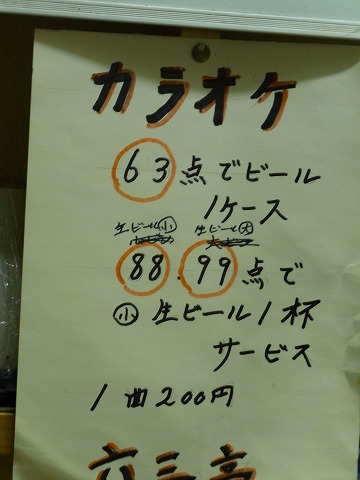 カラオケ
63点でビール
1ケース
生ビール小 生ビール大
88.99点で
小生ビール1杯
サービス
1曲200円
六三亭